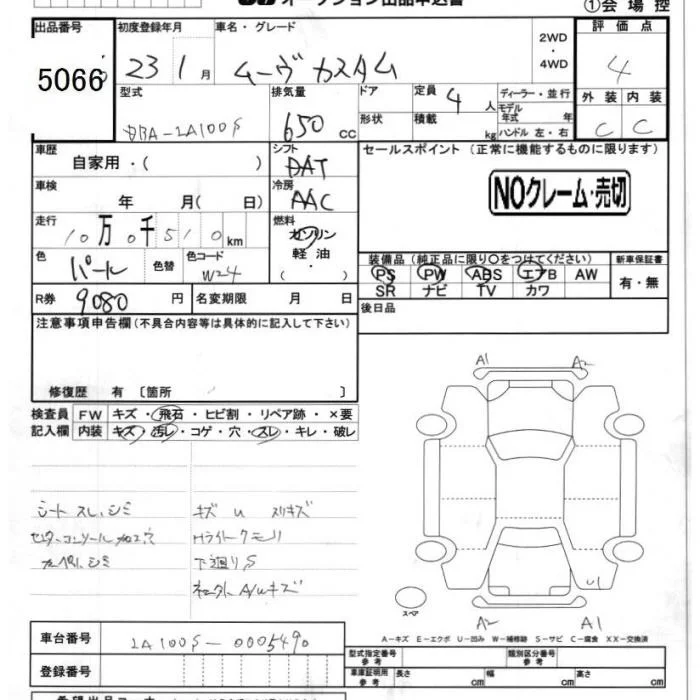 オークション出品申込書
①会場控
出品番号 初度登録年月 車名・グレード 2WD・4WD 評価点
5066 23 1月 ムーヴ カスタム 4
型式 排気量 ドア 定員 4人 ディーラー・並行 外装 内装
DBA-LA100S 650cc 形状 積載 kg モデル年式 年 ハンドル 左・右 C C
車歴 自家用・( ) シフト DAT セールスポイント(正常に機能するものに限ります)
車検 年 月( 日) 冷房 AAC NOクレーム・売切
走行 10万0千510km 燃料 ガソリン 軽油・( )
色 パール 色替 色コード W24
装備品(純正品に限り○をつけてください) 新車保証書
PS PW ABS エアB AW 有・無
SR ナビ TV カワ
R券 9080円 名変期限 月 日 後日品
注意事項申告欄(不具合内容等は具体的に記入して下さい)
修復歴 有 〔箇所 〕
検査員記入欄 FW キズ・飛石・ヒビ割・リペア跡・×要
内装 キズ・汚レ・コゲ・穴・スレ・キレ・破レ
シート スレ、シミ キズ U スリキズ
センターコンソール 加工穴 Hライトクモリ
カーペットシミ 下廻りS
A1 A2
U1
スペア
A2 A1
A－キズ E－エクボ U－凹み W－補修跡 S－サビ C－腐食 XX－交換済
車台番号 LA100S-0005490
型式指定番号 参考 類別区分番号 参考
登録番号 車庫証明用 参考 長さ cm 幅 cm 高さ cm